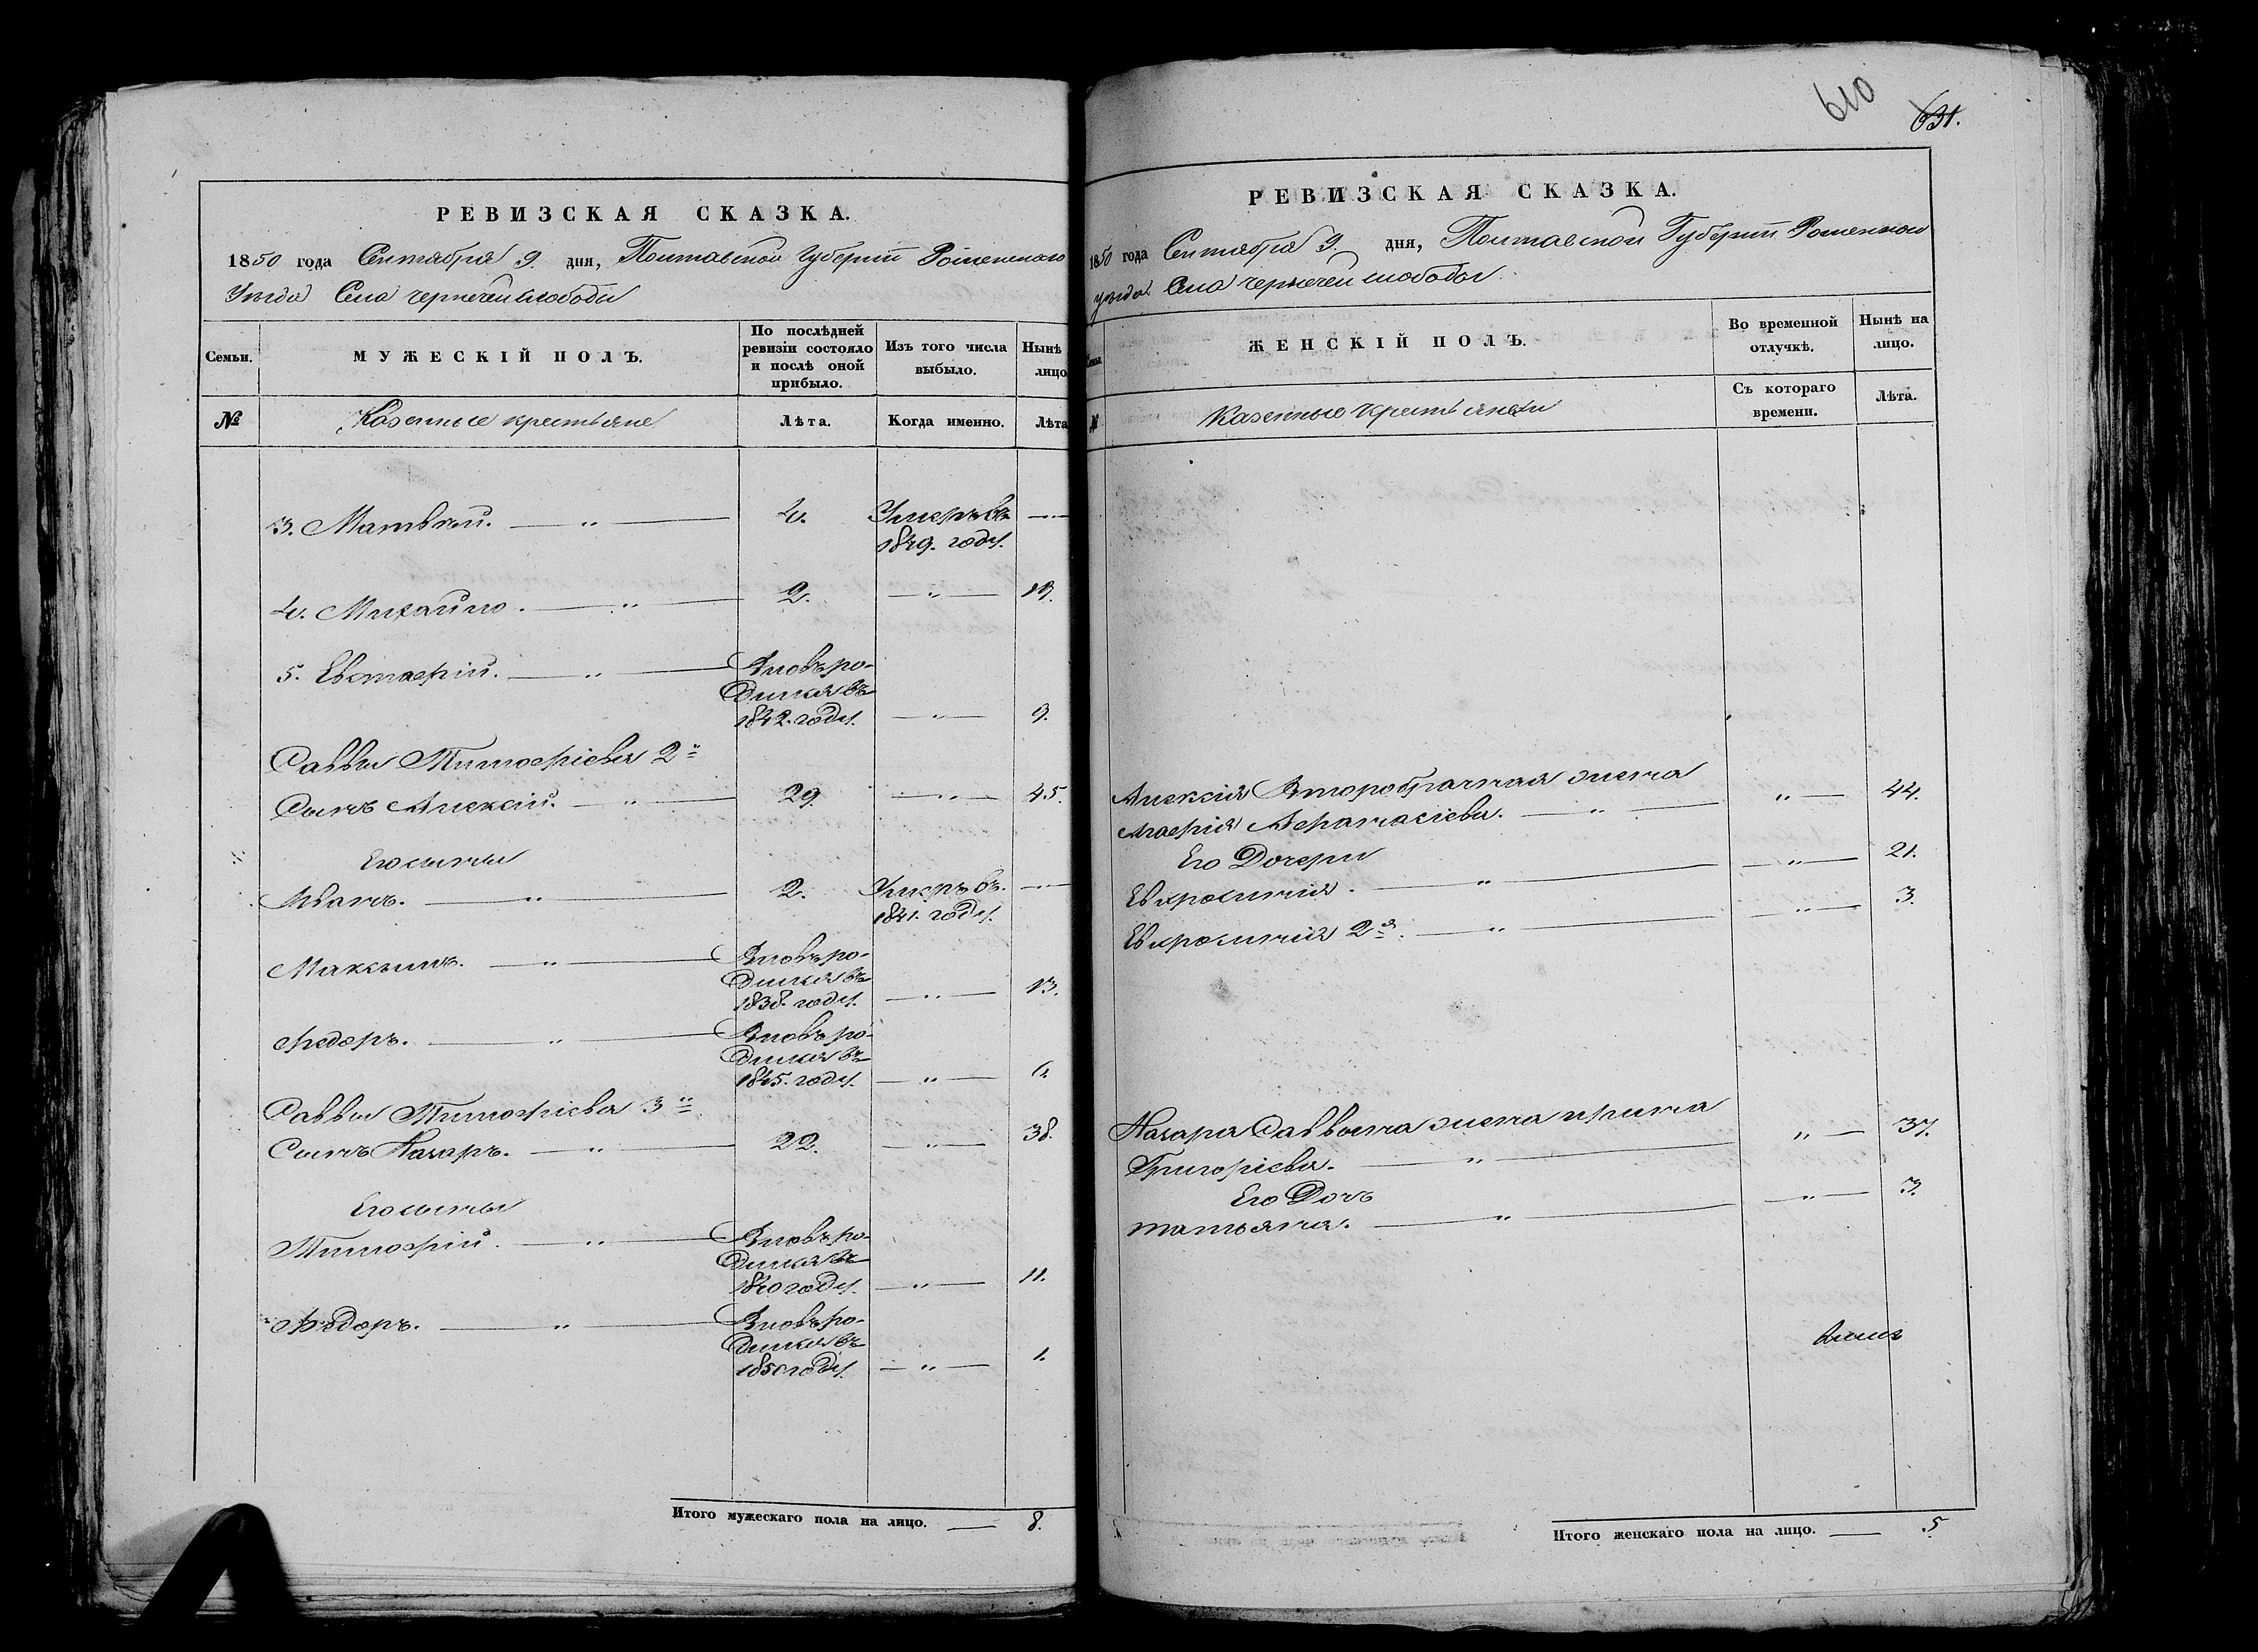 610
631.
РЕВИЗСКАЯ СКАЗКА.
1850 года Сентября 9. дня, Полтавской Губерніи Роменского
Уезда Села чернечей слободы
Семьи. МУЖЕСКІЙ ПОЛЪ. По послѣдней ревизіи состояло и послѣ оной прибыло. Изъ того числа выбыло. Нынѣ лицо
№ Казенные крестьяне Лѣта. Когда именно. Лѣта
3. Матвей. — „ — 4. Умеръ въ —
1849. году.
4. Михайло. — „ — 2. — „ — 18.
5. Евстафій. — „ — Вновь ро-
дился въ
1842. году. — „ — 9.
Саввы Тимофіева 2й
Сынъ Алексій. — „ — 29. — „ — 45.
Его сыны
Иванъ. — „ — 2. Умеръ въ. —
1841. году.
Максимъ. — „ — Вновь ро-
дился въ
1838. году. — „ — 13.
Федоръ. — „ — Вновь ро-
дился въ
1845. году. — „ — 6.
Саввы Тимофіева 3й
Сынъ Назаръ. — „ — 22. — „ — 38.
Его сыны
Тимофій. — „ — Вновь ро-
дился въ
1840 году. — „ — 11.
Федоръ. — „ — Вновь ро-
дился въ
1850 году. — „ — 1.
Итого мужескаго пола на лицо. — 8.
РЕВИЗСКАЯ СКАЗКА.
1850 года Сентября 9. дня, Полтавской Губерніи Роменского
уезда Села чернечей слободы.
ЖЕНСКІЙ ПОЛЪ. Во временной отлучкѣ. Нынѣ на лицо.
№ Казенные крестьянки Съ котораго времени. Лѣта.
Алексія Второбрачная жена
Агафія Афанасіева. — „ — „ — 44.
Его Дочери
Евфросинія. — „ — — „ — 21.
Евфросинія 2я. — „ — — „ — 3.
Назара Саввина жена Ирина
Григоріева. — „ — „ — 37.
Его Дочь
татьяна. — „ — — „ — 3.
Итого женскаго пола на лицо. — 5